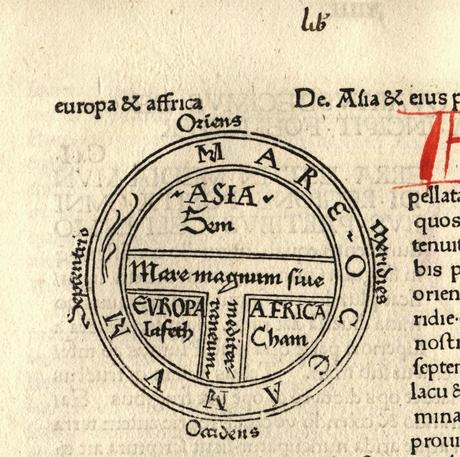 europa & affrica
De. Asia & eius p
Oriens
MARE OCCEANVM
ASIA
Sem
Mare magnum siue
EVROPA
Iafeth
mediter
raneum
AFRICA
Cham
Septentrio
Meridies
Occidens
pellata
quos
tenuit
bis p
orien
ridie·
nostr
septen
lacu &
mina
proui